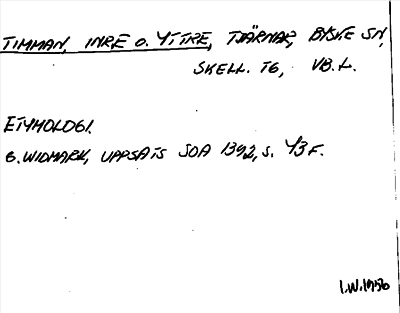 TIMMAN, INRE O. YTTRE, TJÄRNAR, BYSKE SN,
SKELL. TG, VB. L.
ETYMOLOGI.
G. WIDMARK, UPPSATS SOA 1392, S. 43 F.
I.W. 1956